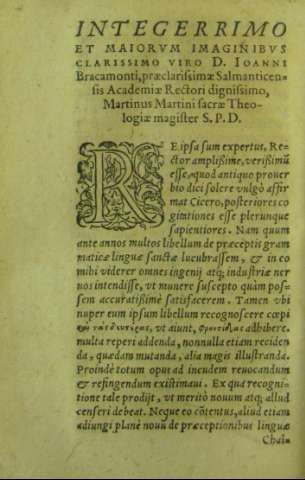 INTEGERRIMO
ET MAIORVM IMAGINIBVS
CLARISSIMO VIRO D. IOANNI
Bracamonti, præclarissimæ Salmanticen-
sis Academiæ Rectori dignissimo,
Martinus Martini sacræ Theo-
logiæ magister S. P. D.
RE ipsa sum expertus, Re-
ctor amplißime, verißimũ
esse, quod antiquo prouer
bio dici solere vulgò affir
mat Cicero, posteriores co
gitationes esse plerunque
sapientiores. Nam quum
ante annos multos libellum de præceptis gram
maticæ linguæ sanctæ lucubrassem, & in eo
mihi viderer omnes ingenij atq; industriæ ner
uos intendisse, vt munere suscepto quàm pos-
sem accuratißimè satisfacerem. Tamen vbi
nuper eum ipsum libellum recognoscere cœpi
vt aiunt, adhibere.
multa reperi addenda, nonnulla etiam reciden
da, quædam mutanda, alia magis illustranda.
Proindè totum opus ad incudem reuocandum
& refingendum existimaui. Ex qua recogni-
tione tale prodijt, vt meritò nouum atq; aliud
censeri debeat. Neque eo cõtentus, aliud etiam
adiungi planè nouũ de præceptionibus linguæ
Chal-